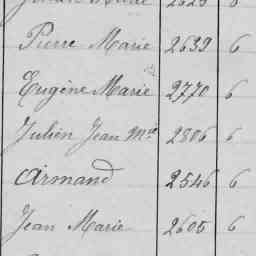 Pierre Marie 2639 6
Eugène Marie 2770 6
Julien Jean Mie 2806 6
Armand 2546 6
Jean Marie 2605 6